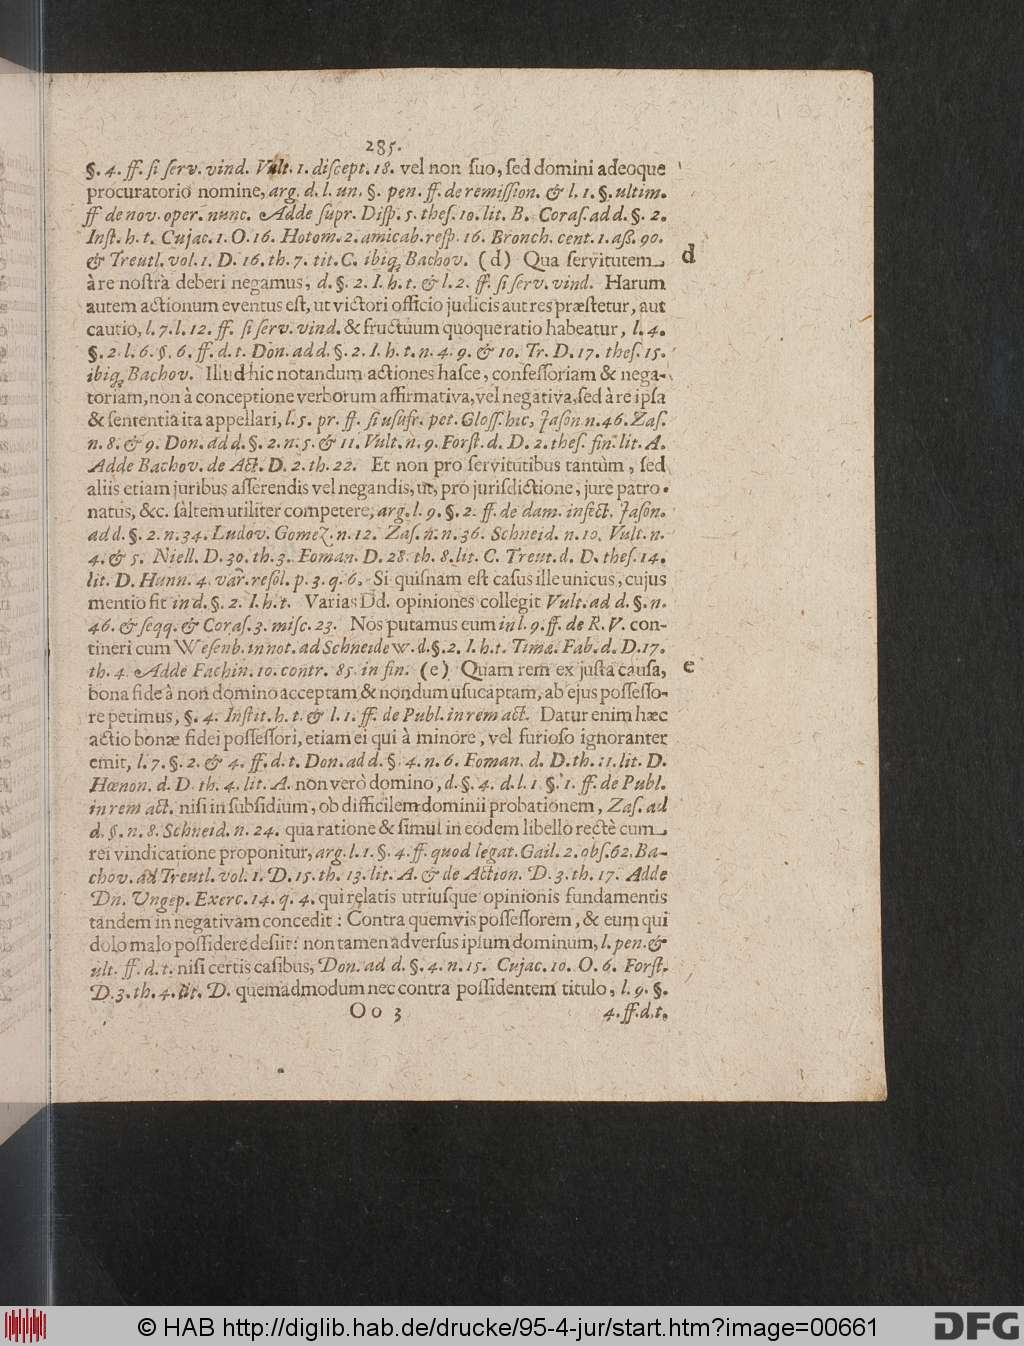 285.
§. 4. ff. si serv. vind. Vult. 1. discept. 18. vel non suo, sed domini adeoque
procuratorio nomine, arg. d. l. un. §. pen. ff. de remission. & l. 1. §. ultim.
ff de nov. oper. nunc. Adde supr. Disp. 5. thes. 10. lit. B. Coras. ad d. §. 2.
Inst. h. t. Cujac. 1. O. 16. Hotom. 2. amicab. resp. 16. Bronch. cent. 1. ass. 90.
& Treutl. vol. 1. D. 16. th. 7. tit. C. ibiq; Bachov. (d) Qua servitutem d
à re nostra deberi negamus, d. §. 2. I. h. t. & l. 2. ff. si serv. vind. Harum
autem actionum eventus est, ut victori officio judicis aut res præstetur, aut
cautio, l. 7. l. 12. ff. si serv. vind. & fructuum quoque ratio habeatur, l. 4.
§. 2. l. 6. §. 6. ff. d. t. Don. ad d. §. 2. I. h. t. n. 4. 9. & 10. Tr. D. 17. thes. 15.
ibiq; Bachov. Illud hic notandum actiones hasce, confessoriam & nega-
toriam, non à conceptione verborum affirmativa, vel negativa, sed à re ipsa
& sententia ita appellari, l. 5. pr. ff. si ususfr. pet. Gloss. hic, Jason n. 46. Zas.
n. 8. & 9. Don. ad d. §. 2. n. 5. & 11. Vult. n. 9. Forst. d. D. 2. thes. fin. lit. A.
Adde Bachov. de Act. D. 2. th. 22. Et non pro servitutibus tantùm, sed
aliis etiam juribus asserendis vel negandis, ut, pro jurisdictione, jure patro-
natus, &c. sàltem utiliter competere, arg. l. 9. §. 2. ff. de dam. infect. Jason.
ad d. §. 2. n. 34. Ludov. Gomez. n. 12. Zas. n. n. 36. Schneid. n. 10. Vult. n.
4. & 5. Niell. D. 30. th. 3. Eoman. D. 28. th. 8. lit. C. Treut. d. D. thes. 14.
lit. D. Hunn. 4. var. resol. p. 3. q. 6. Si quisnam est casus ille unicus, cujus
mentio fit in d. §. 2. I. h. t. Varias Dd. opiniones collegit Vult. ad d. §. n.
46. & seqq. & Coras. 3. misc. 23. Nos putamus eum in l. 9. ff. de R. V. con-
tineri cum Wesenb. in not. ad Schneidew. d. §. 2. I. h. t. Timæ. Fab. d. D. 17.
th. 4. Adde Fachin. 10. contr. 85. in fin. (e) Quam rem ex justa causa, e
bona fide à non domino acceptam & nondum usucaptam, ab ejus possesso-
re petimus, §. 4. Instit. h. t. & l. 1. ff. de Publ. in rem act. Datur enim hæc
actio bonæ fidei possessori, etiam ei qui à minore, vel furioso ignoranter
emit, l. 7. §. 2. & 4. ff. d. t. Don. ad d. §. 4. n. 6. Eoman. d. D. th. 11. lit. D.
Hœnon. d. D. th. 4. lit. A. non verò domino, d. §. 4. d. l. 1. §. 1. ff. de Publ.
in rem act. nisi in subsidium, ob difficilem dominii probationem, Zas. ad
d. §. n. 8. Schneid. n. 24. qua ratione & simul in eodem libello rectè cum
rei vindicatione proponitur, arg. l. 1. §. 4. ff. quod legat. Gail. 2. obs. 62. Ba-
chov. ad Treutl. vol. 1. D. 15. th. 13. lit. A. & de Action. D. 3. th. 17. Adde
Dn. Ungep. Exerc. 14. q. 4. qui relatis utriusque opinionis fundamentis
tandem in negativam concedit: Contra quemvis possessorem, & eum qui
dolo malo possidere desiit: non tamen adversus ipsum dominum, l. pen. &
ult. ff. d. t. nisi certis casibus, Don. ad d. §. 4. n. 15. Cujac. 10. O. 6. Forst.
D. 3. th. 4. lit. D. quemadmodum nec contra possidentem titulo, l. 9. §.
Oo 3 4. ff. d. t.
© HAB http://diglib.hab.de/drucke/95-4-jur/start.htm?image=00661
DFG